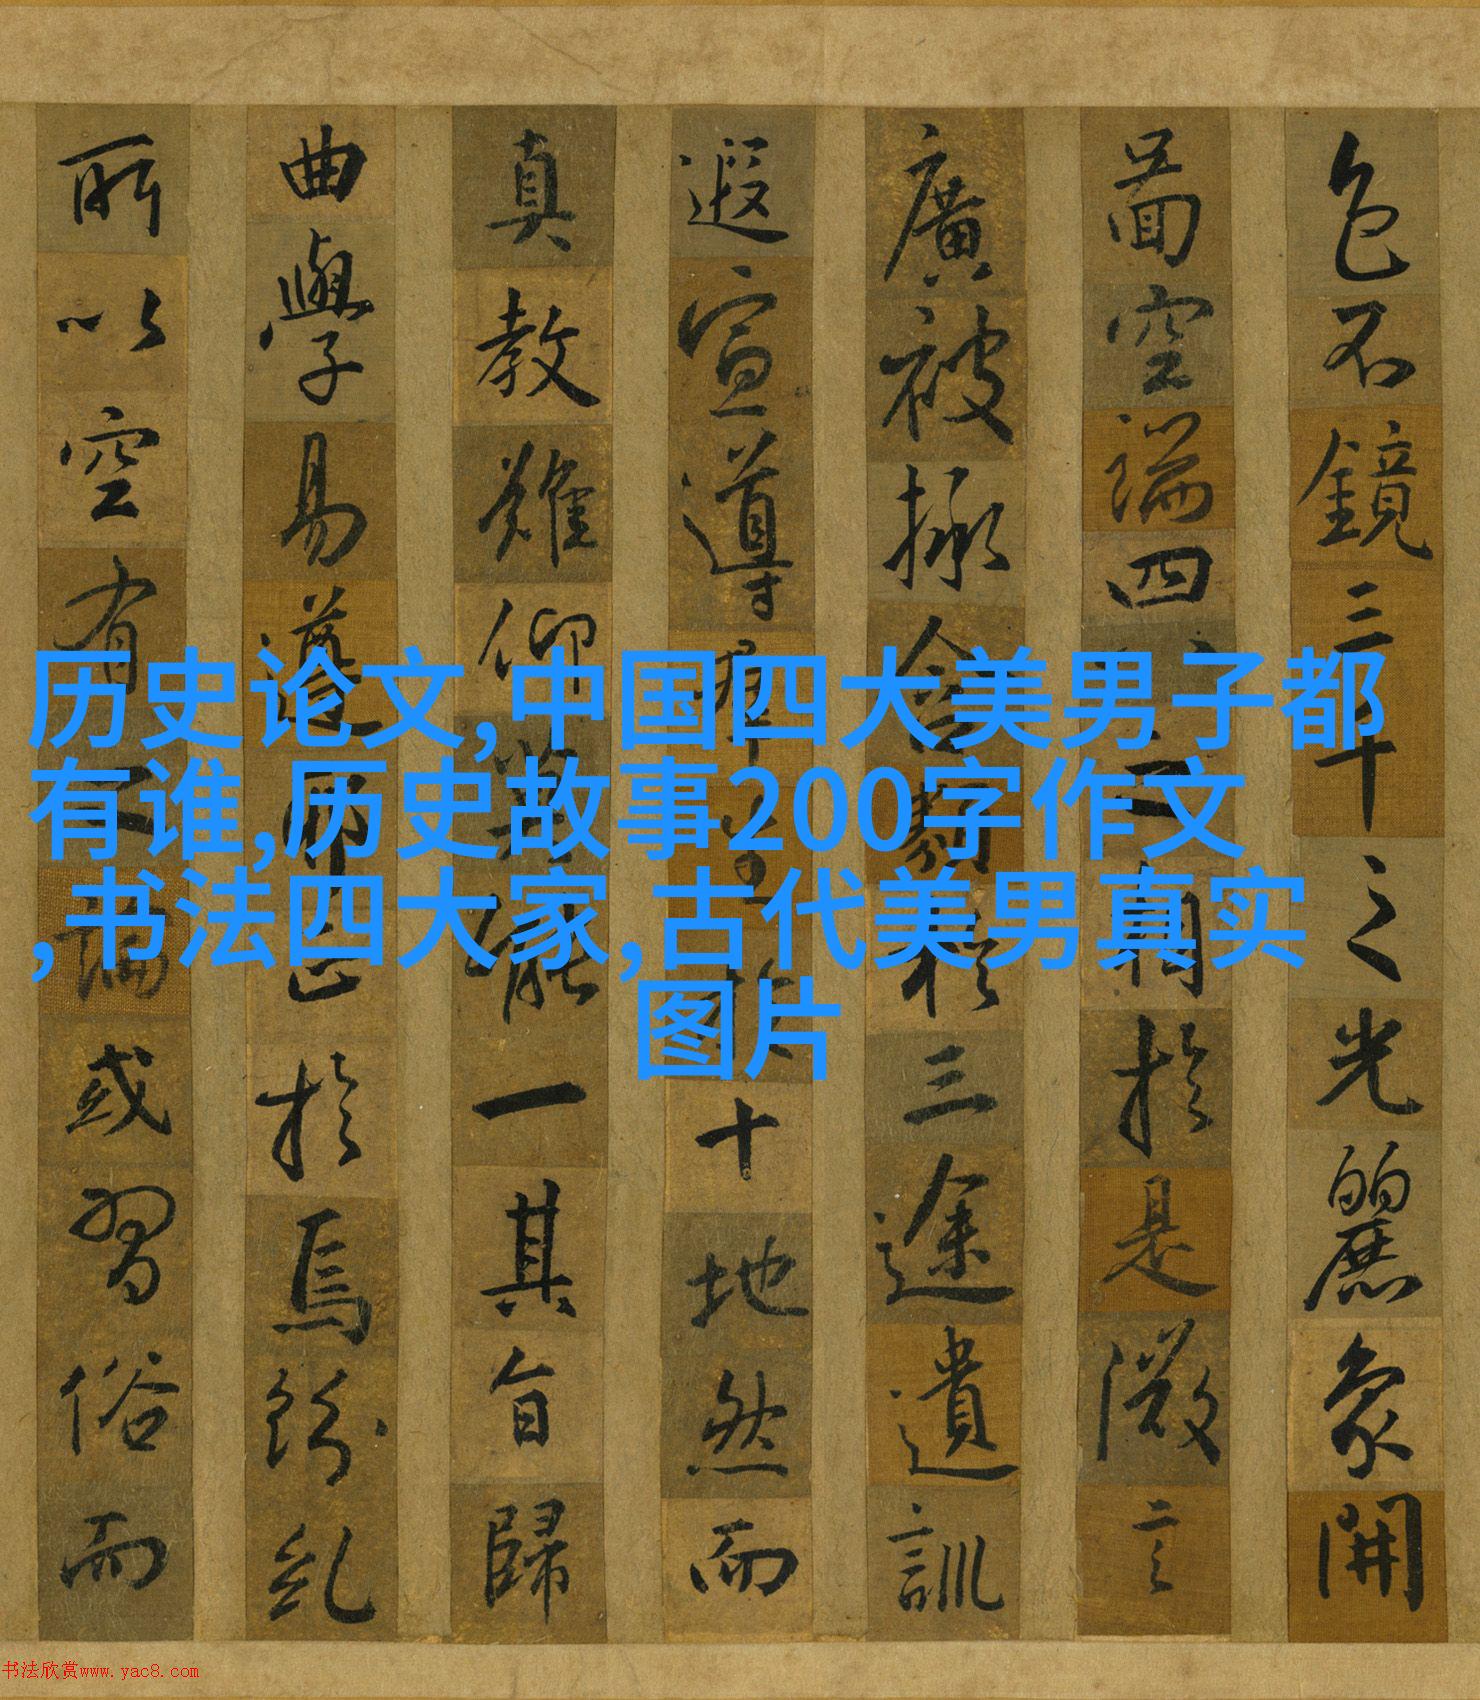 历史论文,中国四大美男子都
有谁,历史故事200字作文
,书法四大家,古代美男真实
图片
色不鏡三千之光麗象開
啚空端四相於是微言
廣被拯含類三途遺訓
遐宣導群生於十地然而
真教難仰莫能一其旨歸
曲學易遵耶正於焉紛糺
所以空有論或習俗而
书法欣赏www.yac8.com